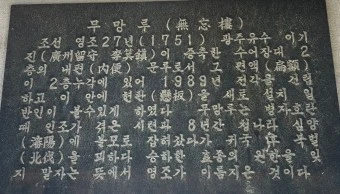 무망루(無忘樓)
조선 영조27년(1751) 광주유수 이기
진(廣州留守 李箕鎭)이 증축한 수어장대 2
층의 내편(内便) 문루로서 그 편액(扁額)
이 2층누각에 있어 1989년 전각을 건립
하고 이 안에 현한(懸板)을 새로 설치 일
반인이 볼수있게 하였다 무망루는 병자호란
때 인조가 겪은 시련과 8년간 청나라 심양
(瀋陽)에 볼모로 잡혀갔다가 귀국 후 북벌
(北伐)을 꾀하다 승하한 효종의 원한을 잊
지 말자는 뜻에서 영조가 이름지은 것이다